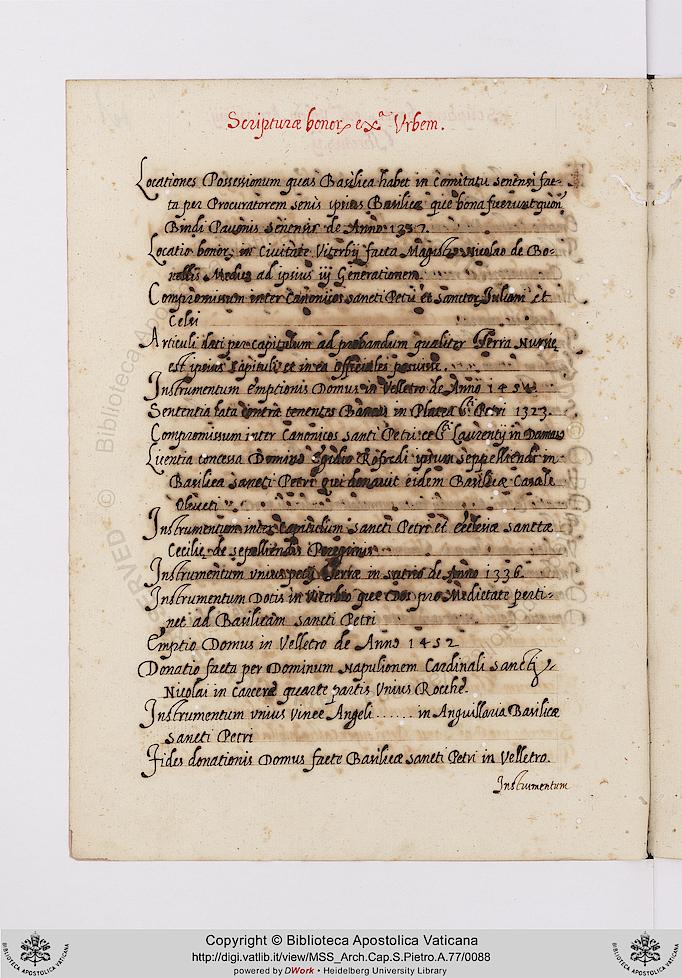 Scripturæ honorꝝ exᵃ Vrbem.
Locationes Possessionum quas Basilica habet in comitatu senensi fac-
ta per Procuratorem senis ipsius Basilicæ que bona fuerunt quon
Bindi Pauonis senensis de Anno 1337.
Locatio bonorꝝ in Ciuitate Viterbij facta Magistro Nicolao de Bo-
rellis Medico ad ipsius iij Generationem
Compromissum inter Canonicos sancti Petri et sanctorꝝ Iuliani et
Celsi
Articuli dati per capitulum ad probandum qualiter Terra Nurie
est ipsius Capituli et in ea officiales posuisse.
Instrumentum emptionis Domus in Velletro de Anno 1454
Sententia lata contra tenentes Bancos in Platea bti Petri 1323.
Compromissum inter Canonicos santi Petri et bti Laurentij in Damaso
Licentia concessa Domino Egidio Rofredi ipsum seppelliendi in
Basilica sancti Petri qui donauit eidem Basilicæ Casale
Oliueti
Instrumentum inter Capitulum sancti Petri et ecclesiæ sanctæ
Cecilię de sepelliendis Peregrinis
Instrumentum vnius petij Terræ in sutrio de Anno 1336.
Instrumentum Dotis in Viterbio que Dos pro Medietate perti-
net ad Basilicam sancti Petri
Emptio Domus in Velletro de Anno 1452
Donatio facta per Dominum Napulionem Cardinali sancti
Nicolai in carcere quarte partis Vnius Rocche.
Instrumentum vnius vinee Angeli ....... in Anguillaria Basilicæ
sancti Petri
Fides donationis Domus facte Basilicæ sancti Petri in Velletro.
Instrumentum
Copyright © Biblioteca Apostolica Vaticana
http://digi.vatlib.it/view/MSS_Arch.Cap.S.Pietro.A.77/0088
powered by DWork • Heidelberg University Library